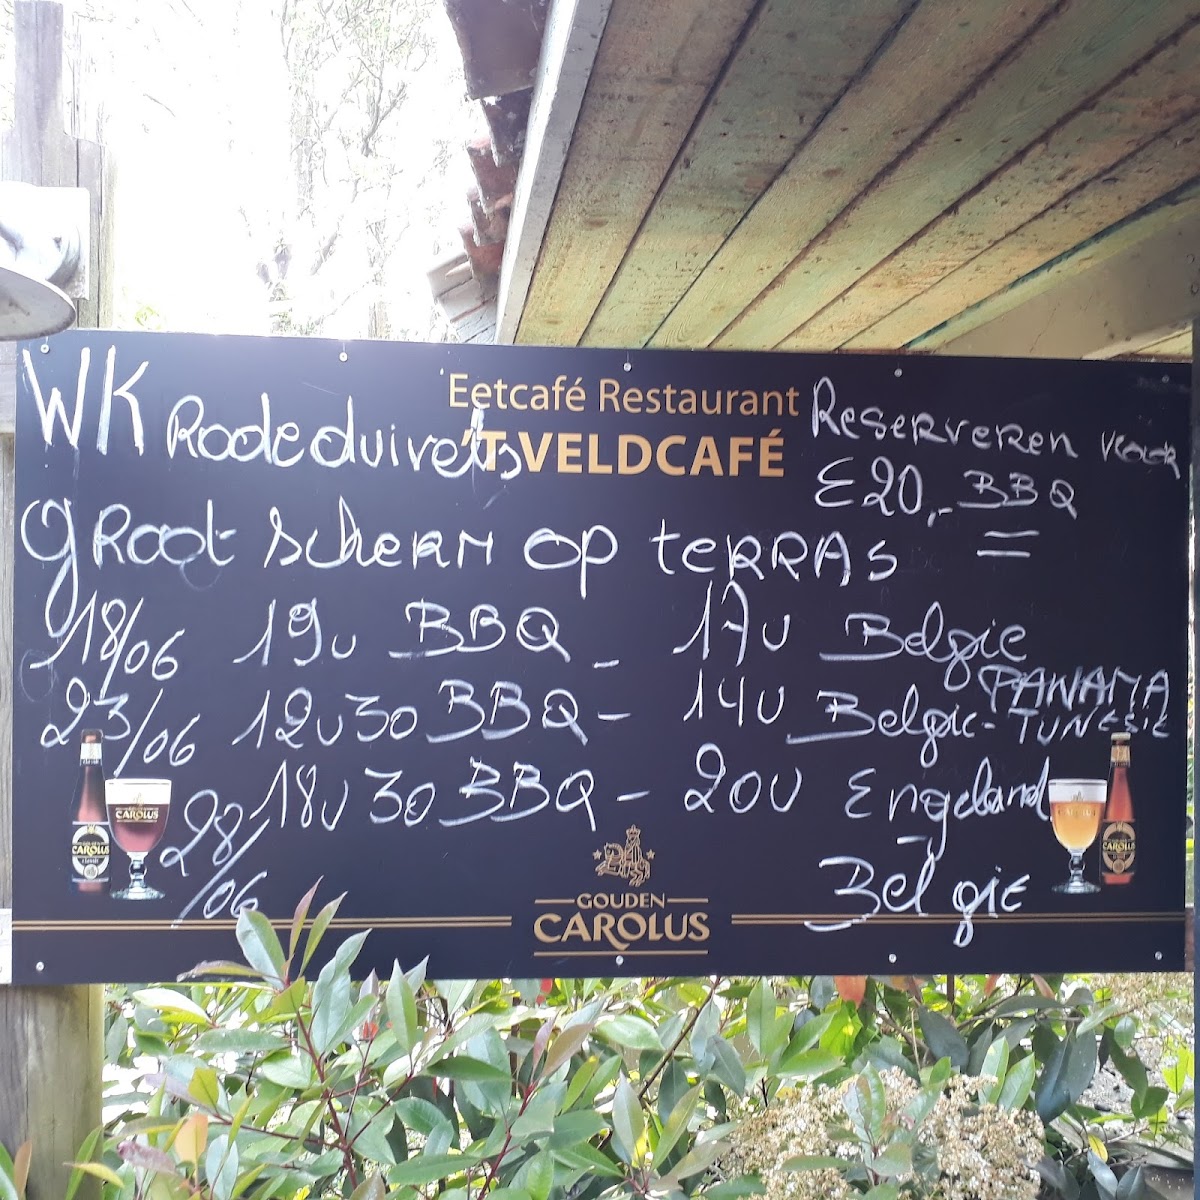 Eetcafé Restaurant
'T VELDCAFÉ
WK Rode duivels
Reserveren voor
€20,- BBQ
groot scherm op terras
18/06 19u BBQ - 17u Belgie PANAMA
23/06 12u30 BBQ - 14u Belgie - TUNESIE
28/06 18u30 BBQ - 20u Engeland - Belgie
CAROLUS
CAROLUS
CAROLUS
CAROLUS
GOUDEN
CAROLUS